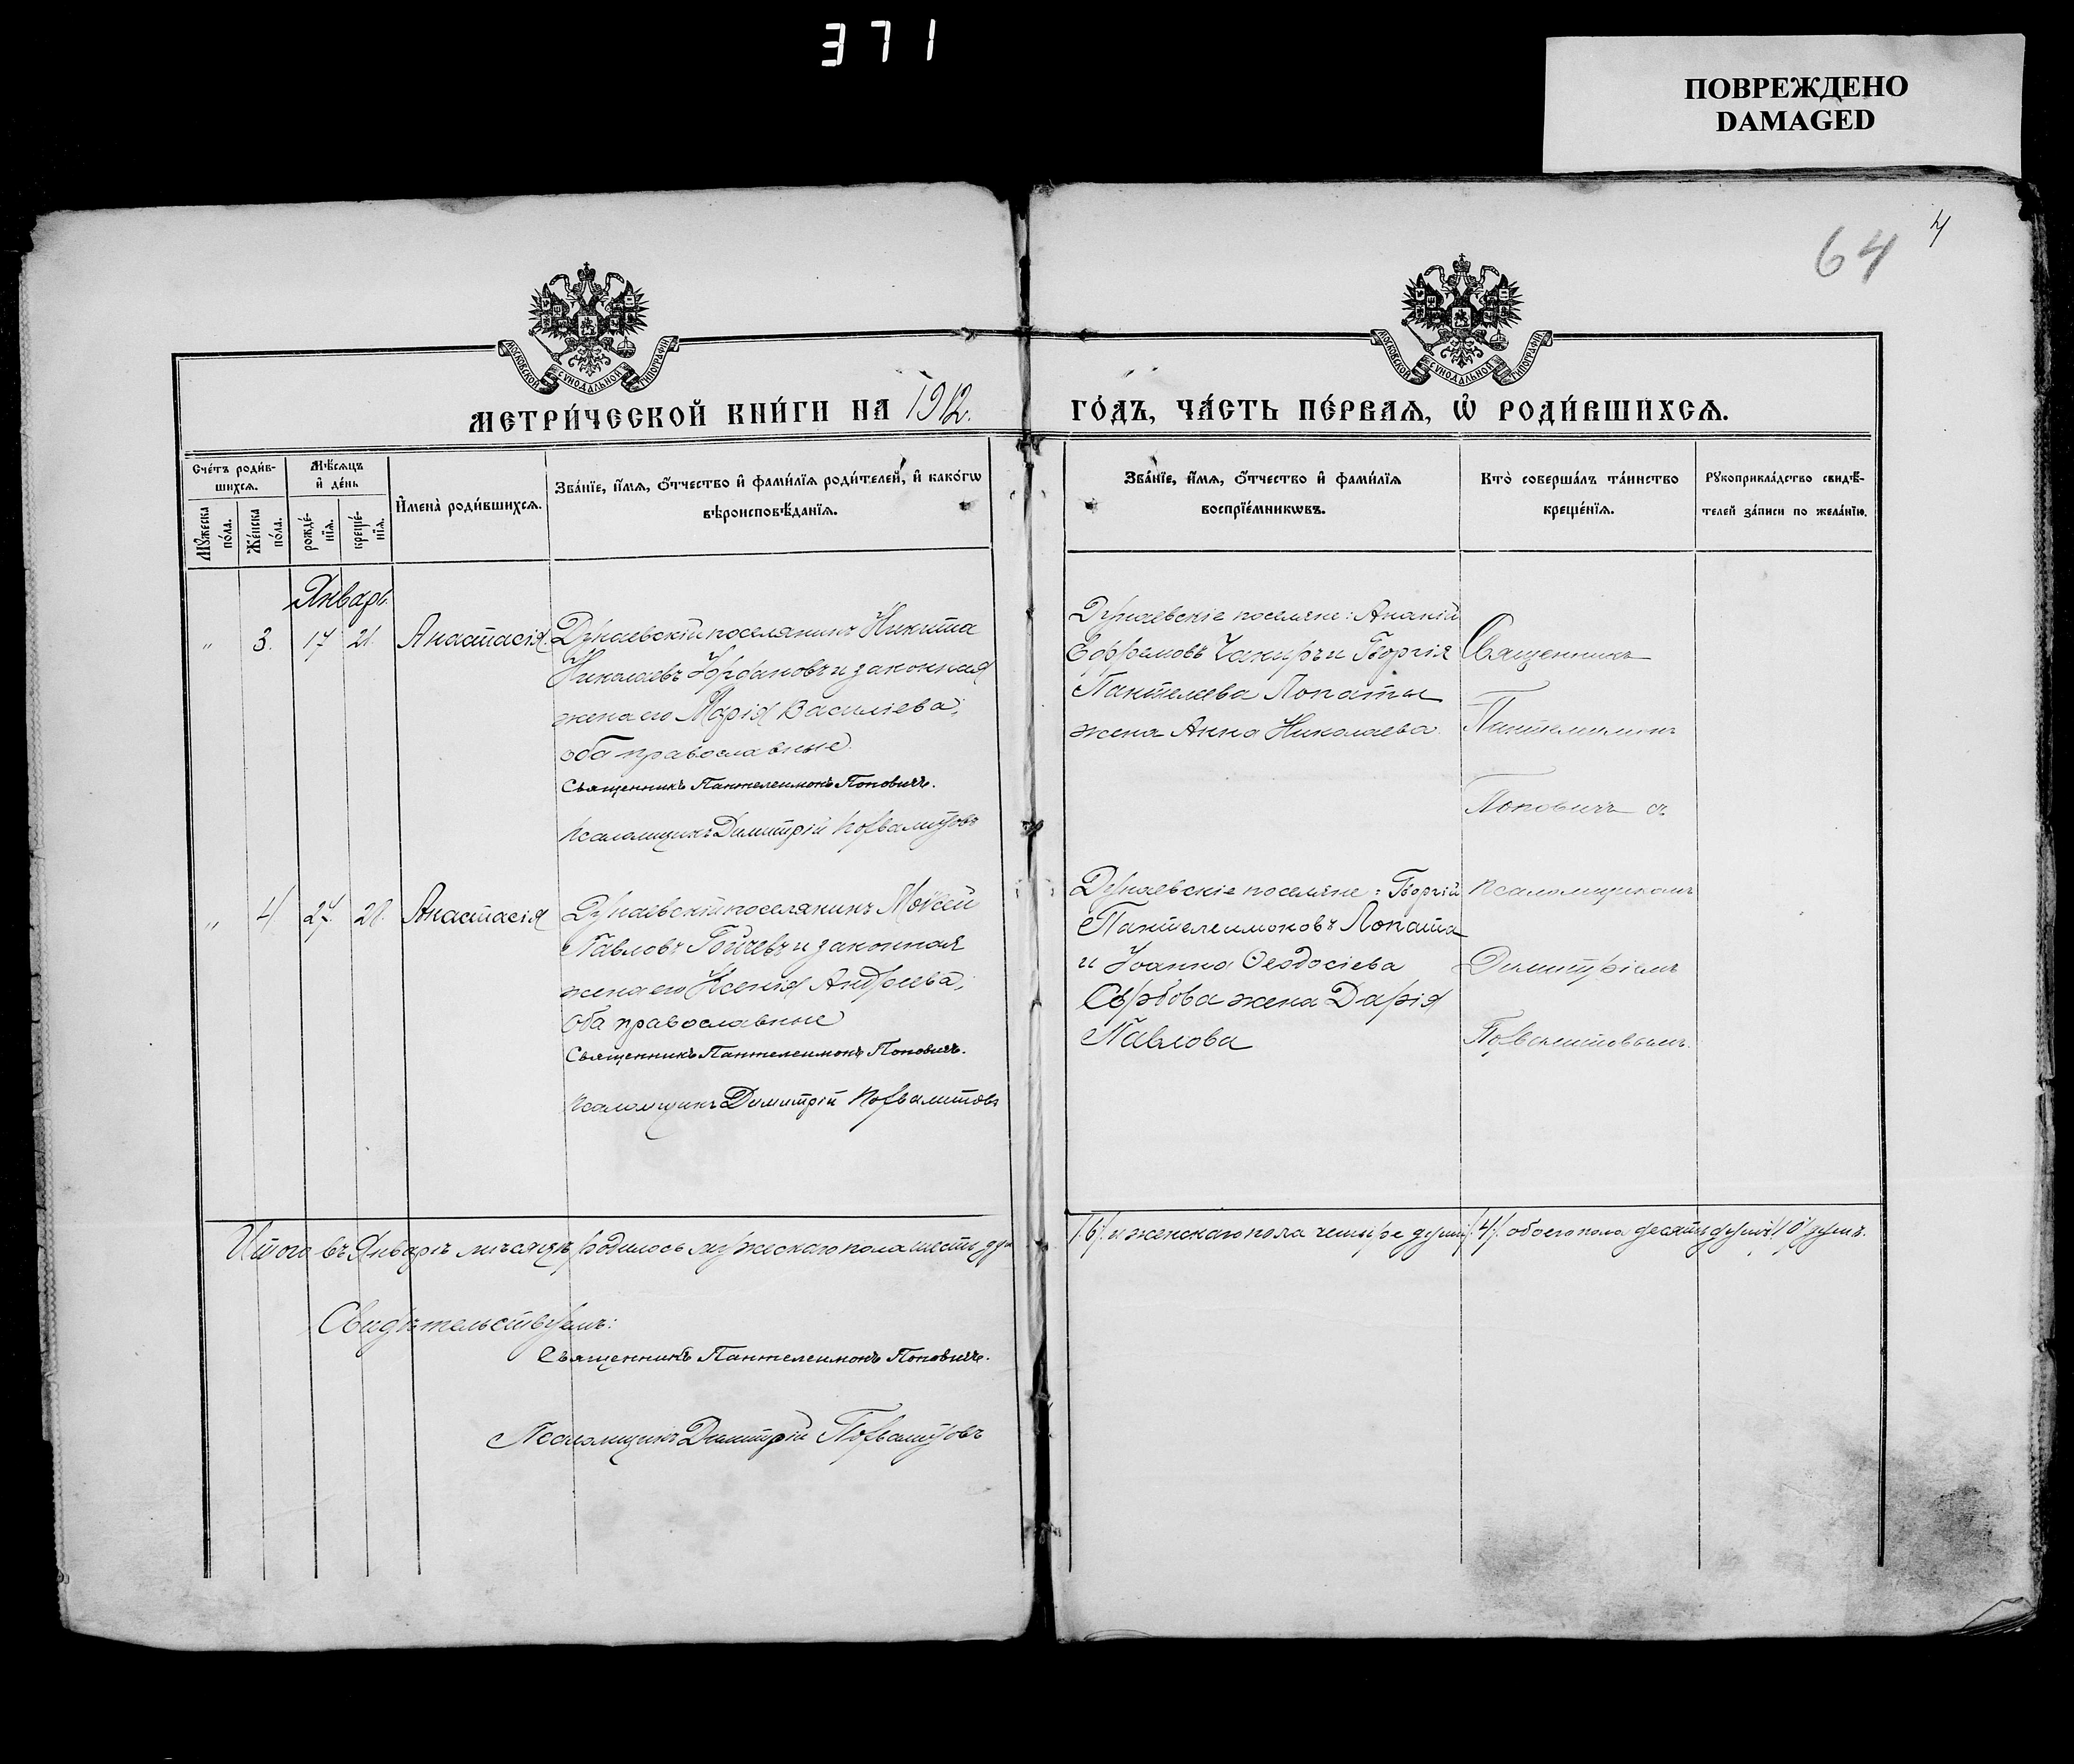 371
ПОВРЕЖДЕНО
DAMAGED
64 4
МОСКОВСКОЙ СУНОДАЛЬНОЙ ТИПОГРАФІИ
МОСКОВСКОЙ СУНОДАЛЬНОЙ ТИПОГРАФІИ
МЕТРИ́ЧЕСКОЙ КНИ́ГИ НА 1912.
ГО́ДЪ, ЧА́СТЬ ПЕ́РВАѦ, Ѡ҆ РОДИ́ВШИХСѦ.
Сче́тъ роди́в-
шихсѧ.
Мꙋ́жеска по́ла.
Же́нска по́ла.
Мѣ́сѧцъ и҆ де́нь
рожде́-нїѧ.
креще́-нїѧ.
И҆мена̀ роди́вшихсѧ.
Зва́нїе, и҆́мѧ, ѻ҆́тчество и҆ фами́лїѧ роди́телей, и҆ како́гѡ
вѣроисповѣ́данїѧ.
Зва́нїе, и҆́мѧ, ѻ҆́тчество и҆ фами́лїѧ
воспрїе́мникѡвъ.
Кто̀ соверша́лъ та́инство
креще́нїѧ.
Рꙋкоприкла́дство свидѣ́-
телей за́писи по жела́нїю.
Январь
" 3. 17 21. Анастасія.
Дунаевскій поселянинъ Никита
Николаевъ Іордановъ и законная
жена его Марія Василіева,
оба православные.
Священникъ Пантелеимонъ Поповичъ.
Псаломщикъ Димитрій
Дунаевскіе поселяне: Ананій
Ефремовъ Чакиръ и Георгія
Пантелеева Лопаты
жена Анна Николаева.
Священникъ
Пантелеимонъ
Поповичъ съ
" 4 27. 28. Анастасія
Дунаевскій поселянинъ Моѵсей
Павловъ Гойчевъ и законная
жена его Ксенія Андреева,
оба православные
Священникъ Пантелеимонъ Поповичъ.
Псаломщикъ Димитрій
Дунаевскіе поселяне: Георгій
Пантелеимоновъ Лопата
и Іоанна Ѳеодосіева
Сырбова жена Дарія
Павлова
псаломщикомъ
Димитріемъ
Итого въ Январѣ мѣсяцѣ родилось мужескаго пола шесть душ /6/ и женскаго пола четыре души /4/. обоего пола десять душъ /10/ душъ.
Свидѣтельствуемъ:
Священникъ Пантелеимонъ Поповичъ.
Псаломщикъ Димитрій